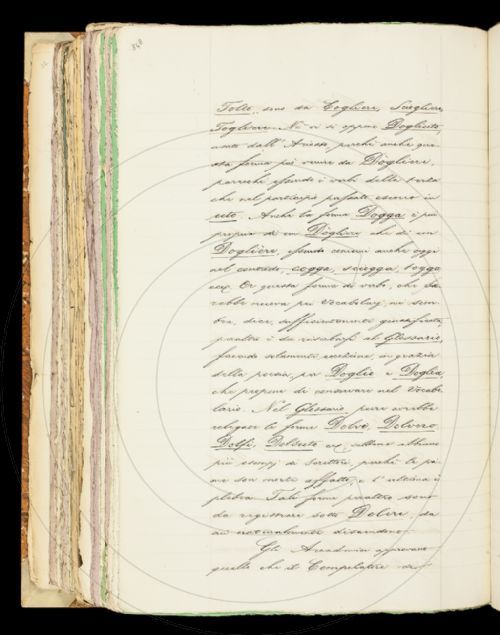 Tolto, sono da Cogliere, Sciogliere,
Togliere. Nè vi si oppone Dogliuto
usato dall' Ariosto, perchè anche que-
sta forma può venire da Dogliere,
parecchi essendo i verbi della terza
che nel participio passato escono in
uto. Anche la forma Dogga è più
propria di un Dogliere che di un
Dogliere, essendo comuni anche oggi
nel contado, cogga, sciogga, togga
ecc. Or questa forma di verbi, che sa-
rebbe nuova pei Vocabolarj, ne sem-
bra, dice, sufficientemente giustificata,
peraltro è da rimandarsi al Glossario,
facendo solamente eccezione, in grazia
della poesia, per Doglio e Doglia,
che propone di conservare nel Vocabo-
lario. Nel Glossario pure vorrebbe
relegare le forme Dolve, Dolvero,
Dolfi, Dolsuto ecc, sebbene abbiano
più esempj di Scrittori, perchè la pri-
ma son morte affatto, e l'ultima è
plebea. Tali forme peraltro sono
da registrare sotto Dolere, da
cui naturalmente discendono.
Gli Accademici approvano
quello che il Compilatore